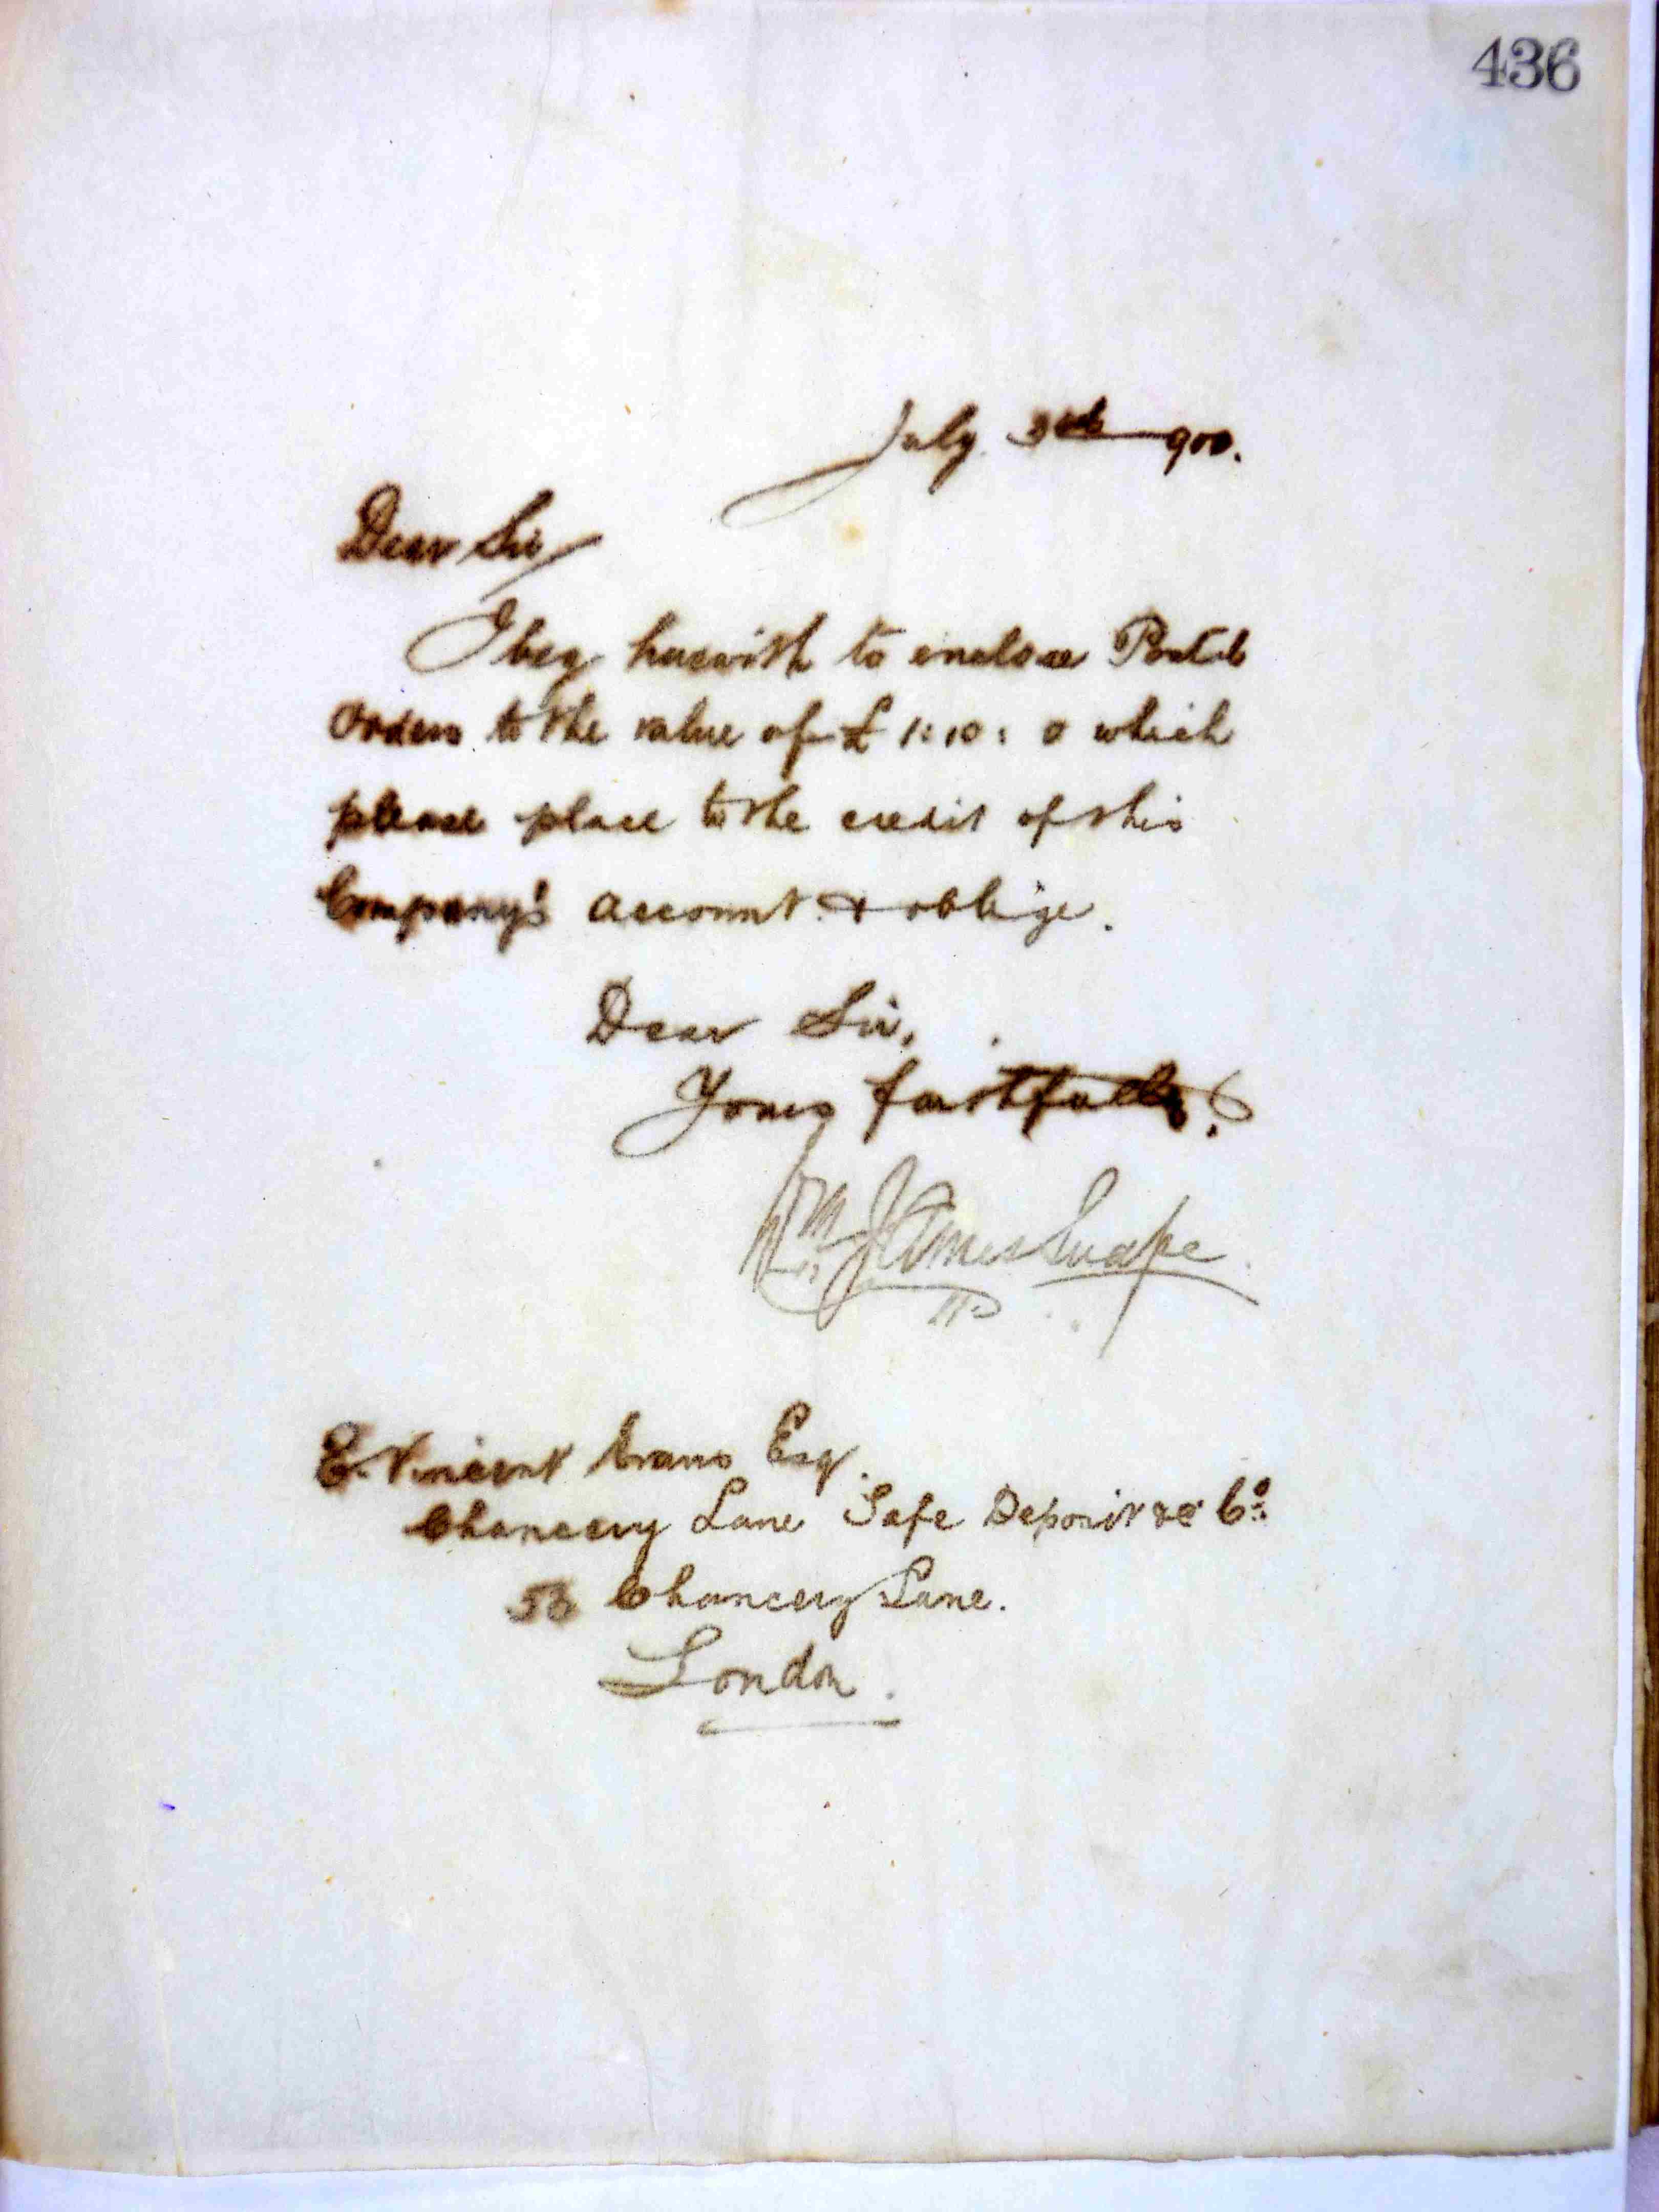 436
July 3rd 900.
Dear Sir
I beg herewith to enclose Postal
Orders to the value of £ 1:10:0 which
please place to the credit of this
Company's account & oblige.
Dear Sir,
Yours faithfully.
Wm James Snape
E. Vincent Evans Esq.
Chancery Lane Safe Deposit &c Co.
Chancery Lane.
London.